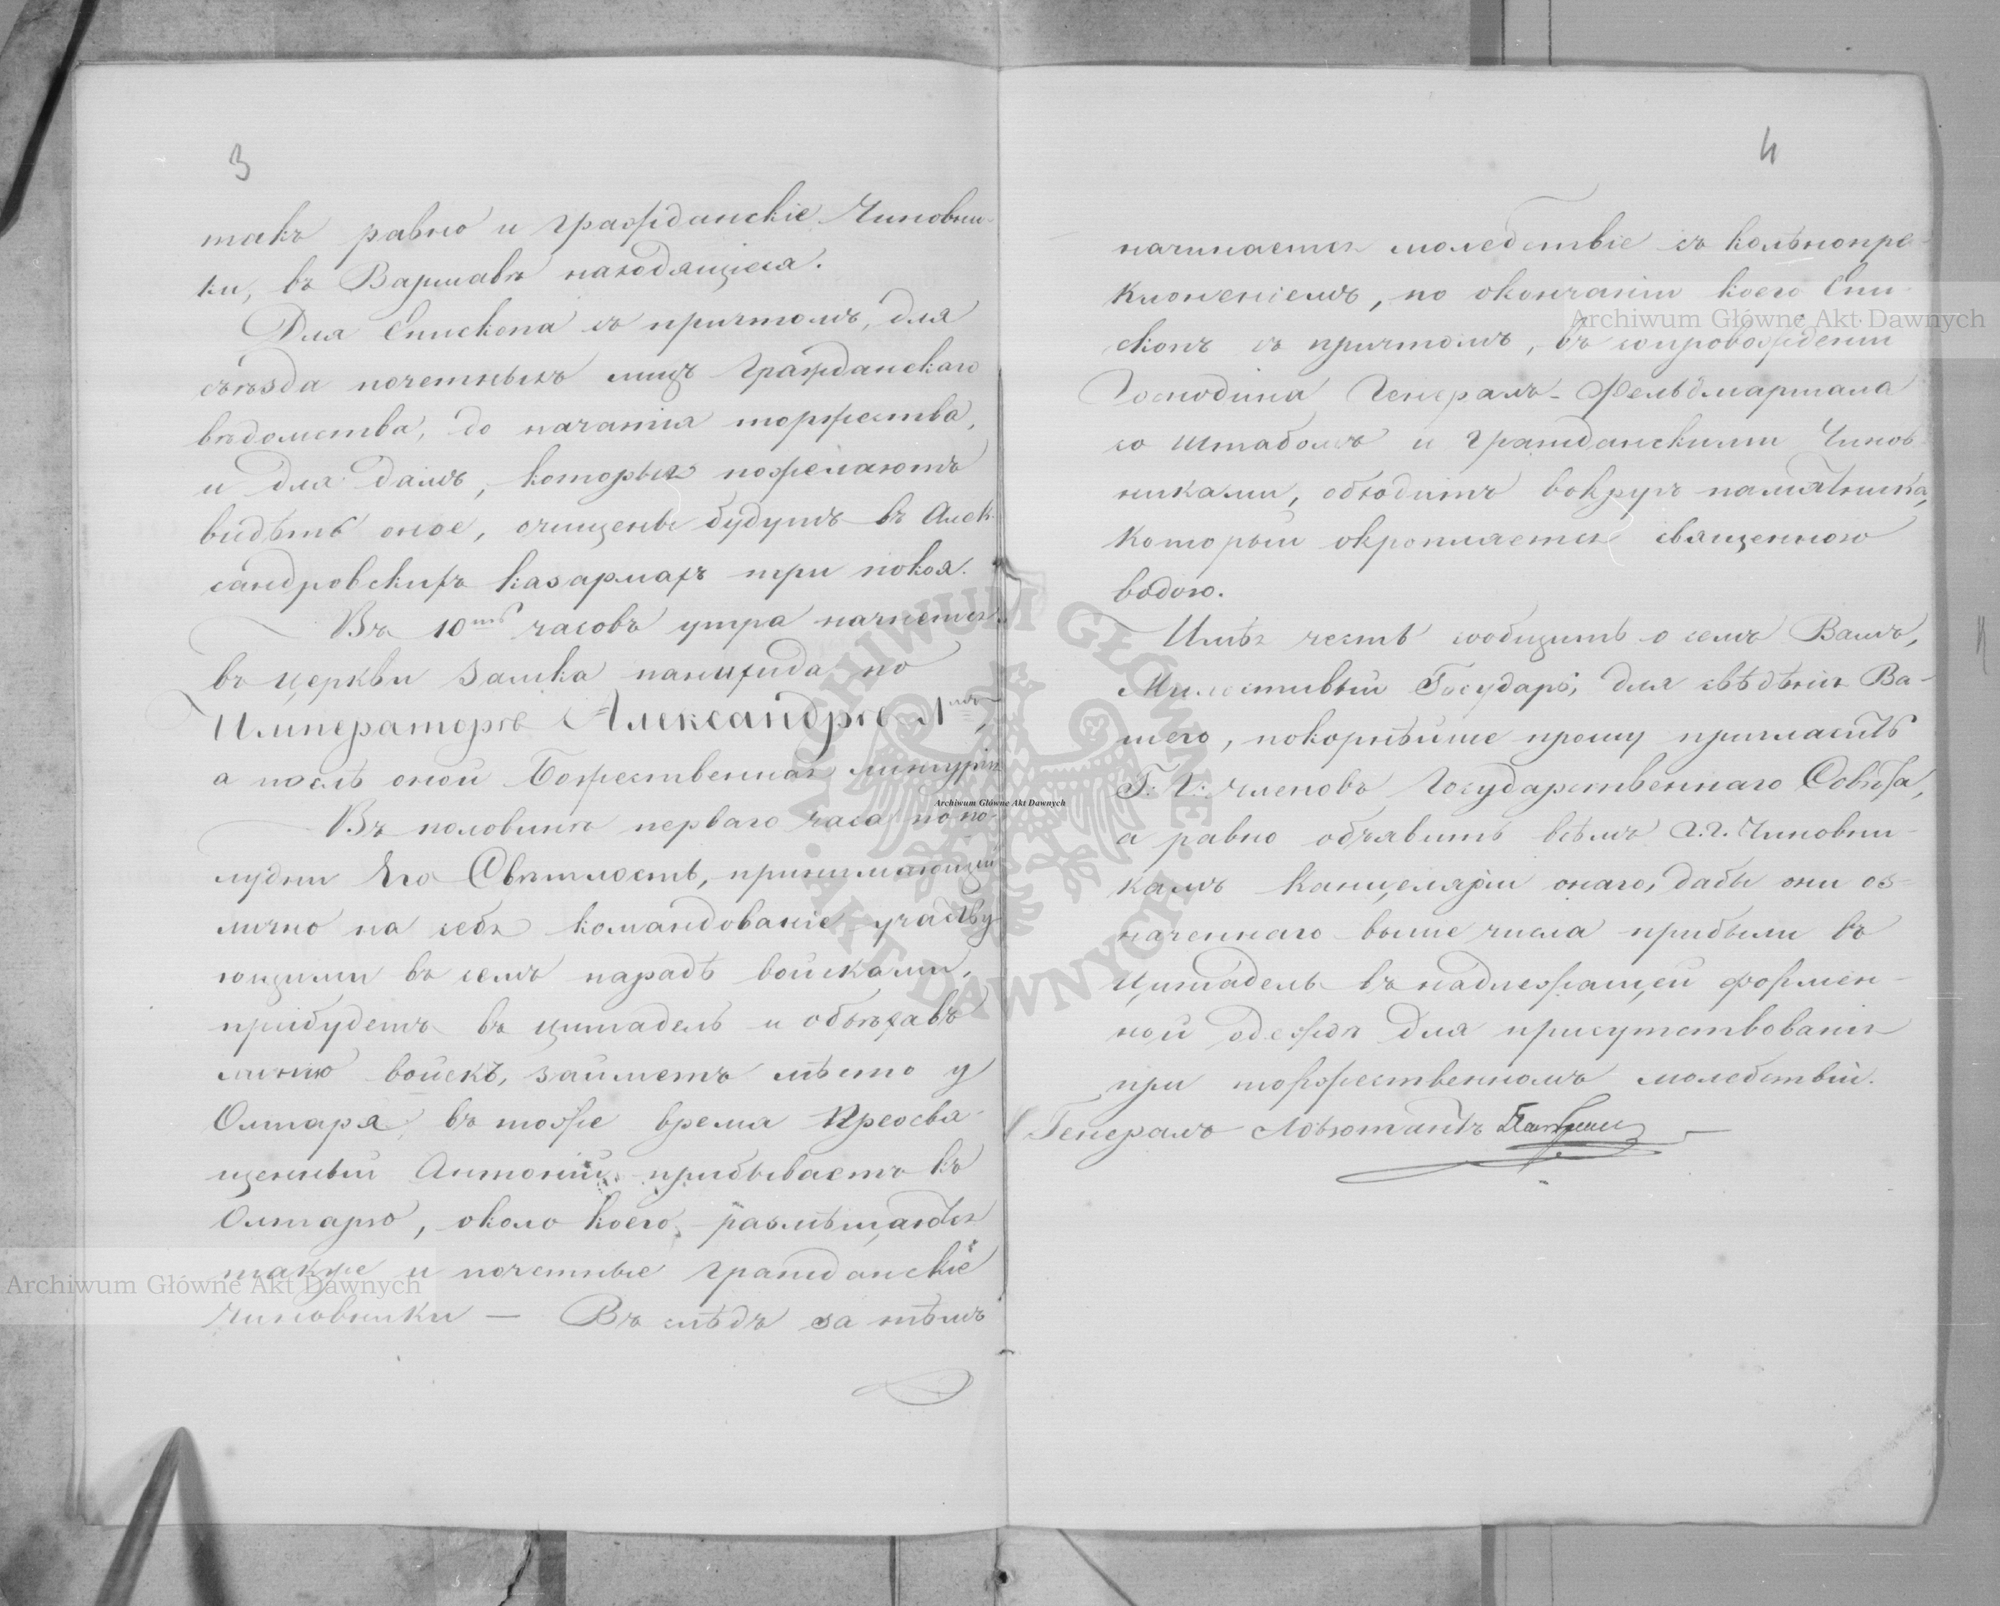 3
такъ равно и гражданскіе Чиновни-
ки, въ Варшавѣ находящіеся.
Для Епископа съ причтомъ, для
съѣзда почетныхъ лицъ гражданскаго
вѣдомства, до начатія торжества,
и для дамъ, которыя пожелаютъ
видѣть оное, очищены будутъ въ Алек-
сандровскихъ казармахъ три покоя.
Въ 10ть часовъ утра начнется
въ церкви Замка панихида по
Императорѣ Александрѣ 1мъ,
а послѣ оной Божественная литургія.
Въ половинѣ перваго часа по по-
лудни Его Свѣтлость, принимающій
лично на себя командованіе участву-
ющими въ семъ парадѣ войсками,
прибудетъ въ цитадель и объѣхавъ
линію войскъ, займетъ мѣсто у
Олтаря, въ тоже время Преосвя-
щенный Антоній прибываетъ къ
Олтарю, около коего размѣщаются
также и почетные гражданскіе
чиновники — Въ слѣдъ за тѣмъ
4
начинается молебствіе съ колѣнопре-
клоненіемъ, по окончаніи коего Епи-
скопъ съ причтомъ, въ сопровожденіи
Господина Генералъ-Фельдмаршала
со штабомъ и гражданскими Чинов-
никами, обходитъ вокругъ памятника,
который окропляется священною
водою.
Имѣя честь сообщить о семъ Вамъ,
Милостивый Государь, для свѣдѣнія Ва-
шего, покорнѣйше прошу пригласить
Г: Г: Членовъ Государственнаго Совѣта,
а равно объявить всѣмъ Г.Г. Чиновни-
камъ Канцеляріи онаго, дабы они оз-
наченнаго выше числа прибыли въ
цитадель въ надлежащей формен-
ной одеждѣ для присутствованія
при торжественномъ молебствіи.
Генералъ Адъютантъ
Archiwum Główne Akt Dawnych
Archiwum Główne Akt Dawnych
Archiwum Główne Akt Dawnych
ARCHIWUM GŁÓWNE
AKT DAWNYCH